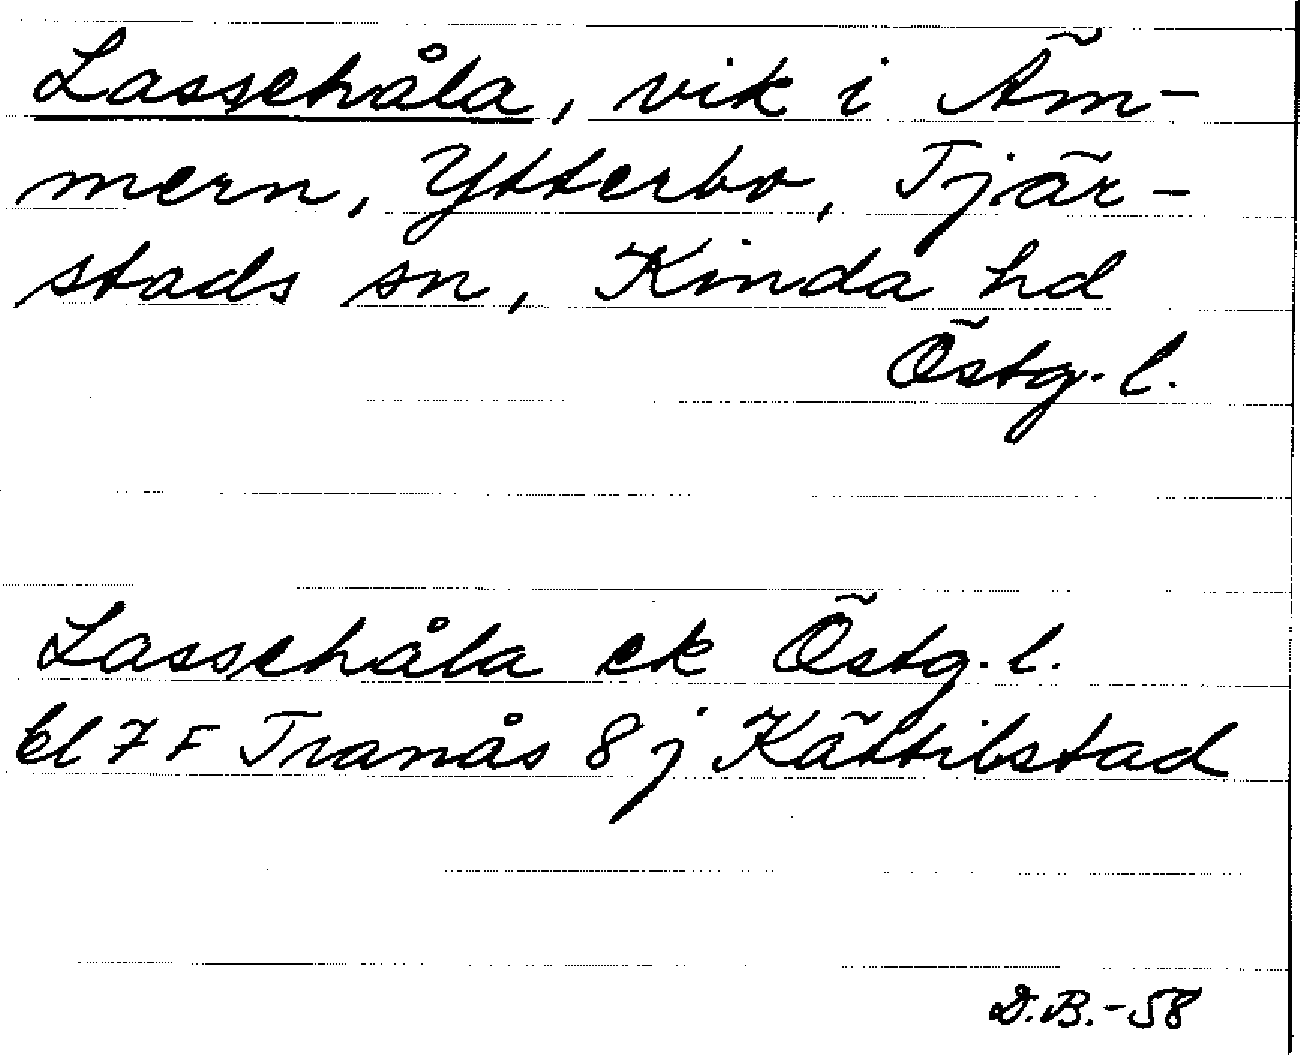 Lassehåla, vik i Äm-
mern, Ytterbo, Tjär-
stads sn, Kinda hd
Östg. l.
Lassehåla ek Östg. l.
bl 7 F Tranås 8 j Kättilstad
D.B.-58